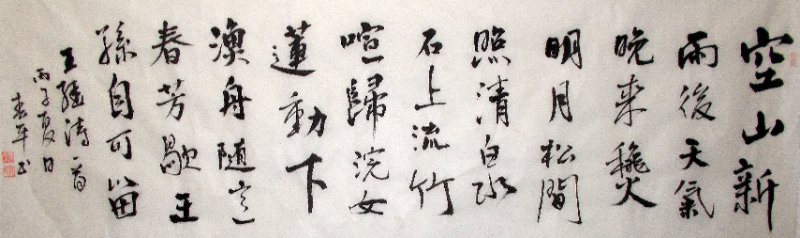 空山新
雨後天氣
晚来秋
明月松間
照清泉
石上流竹
喧歸浣女
蓮動下
漁舟随意
春芳歇王
孫自可留
王維詩一首
丙子夏日